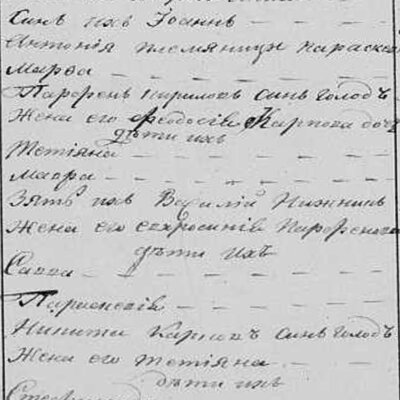 Синъ ихъ Іоаннъ
Антонія племяница Параско
Марва
Парфенъ Кириловъ синъ Голодъ
Жена его Феодосія Карпова доч
дѣти ихъ
Тетіяна
Мавра
Зять ихъ Василій Нижникъ
Жена его Евфросинія Парфенова
дѣти ихъ
Савва
Параскевія
Никита Карповъ синъ Голодъ
Жена его Тетіяна
дѣти ихъ